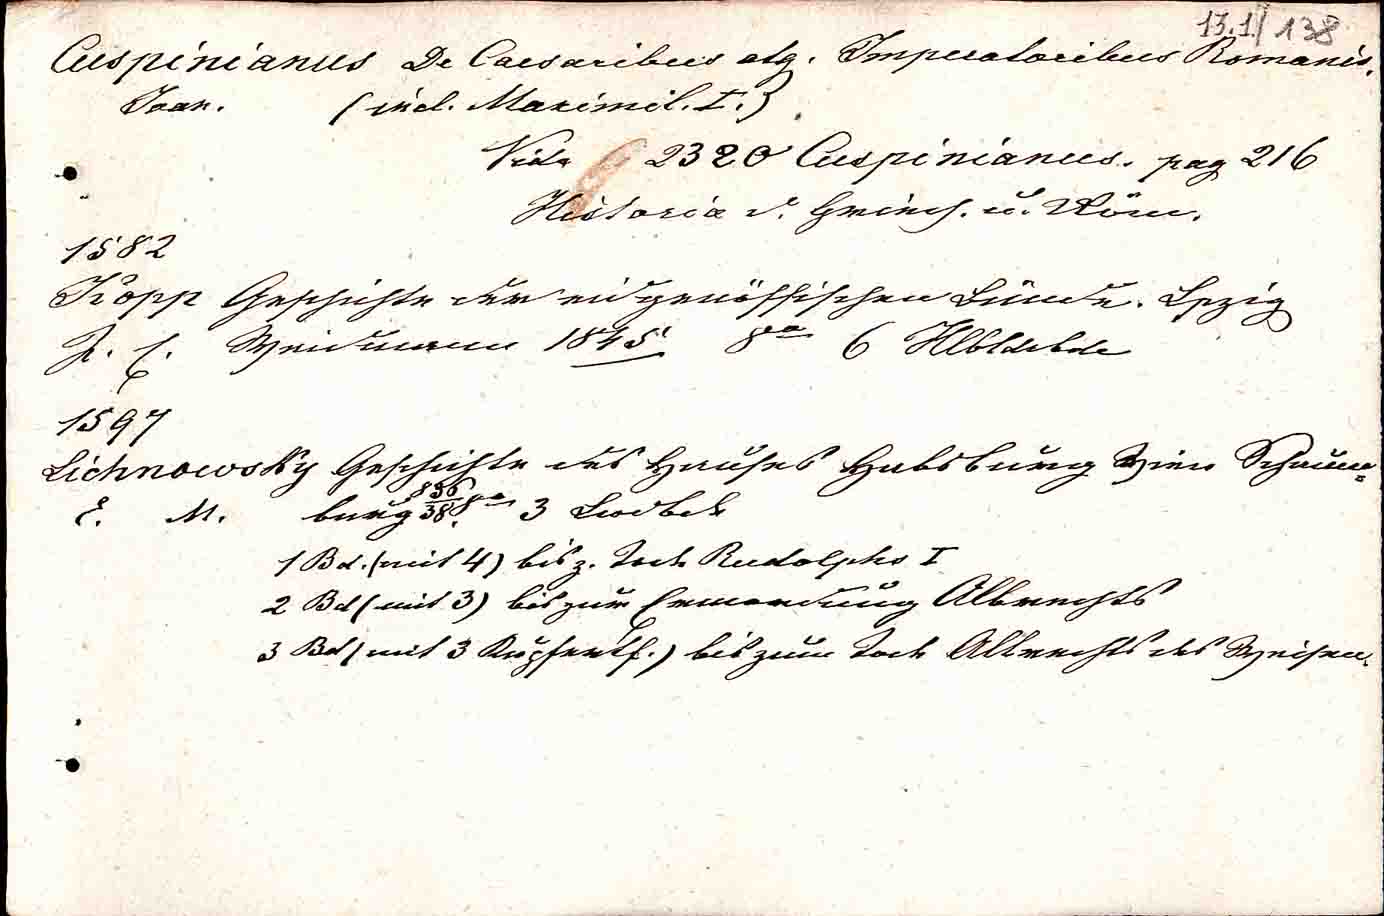 13.1./138
Cuspinianus De Caesaribus atq. Imperatoribus Romanis.
Joan. (incl. Maximil. I.)
Vide 2320 Cuspinianus. pag 216
Historia d. Griech. u. Röm.
1582
Kopp Geschichte der eidgenössischen Bünde. Lpzig
J. E. Weidmann 1845 8vo 6 Hlbldrbde
1597
Lichnowsky Geschichte des Hauses Habsburg Wien Schaum-
E. M. burg 836/38 8vo 3 Ldrbde
1 Bd. (mit 4) bis z. Tode Rudolphs I
2 Bd (mit 3) bis zur Ermordung Albrechts
3 Bd (mit 3 Kupfertf.) bis zum Tode Albrechts des Weisen.